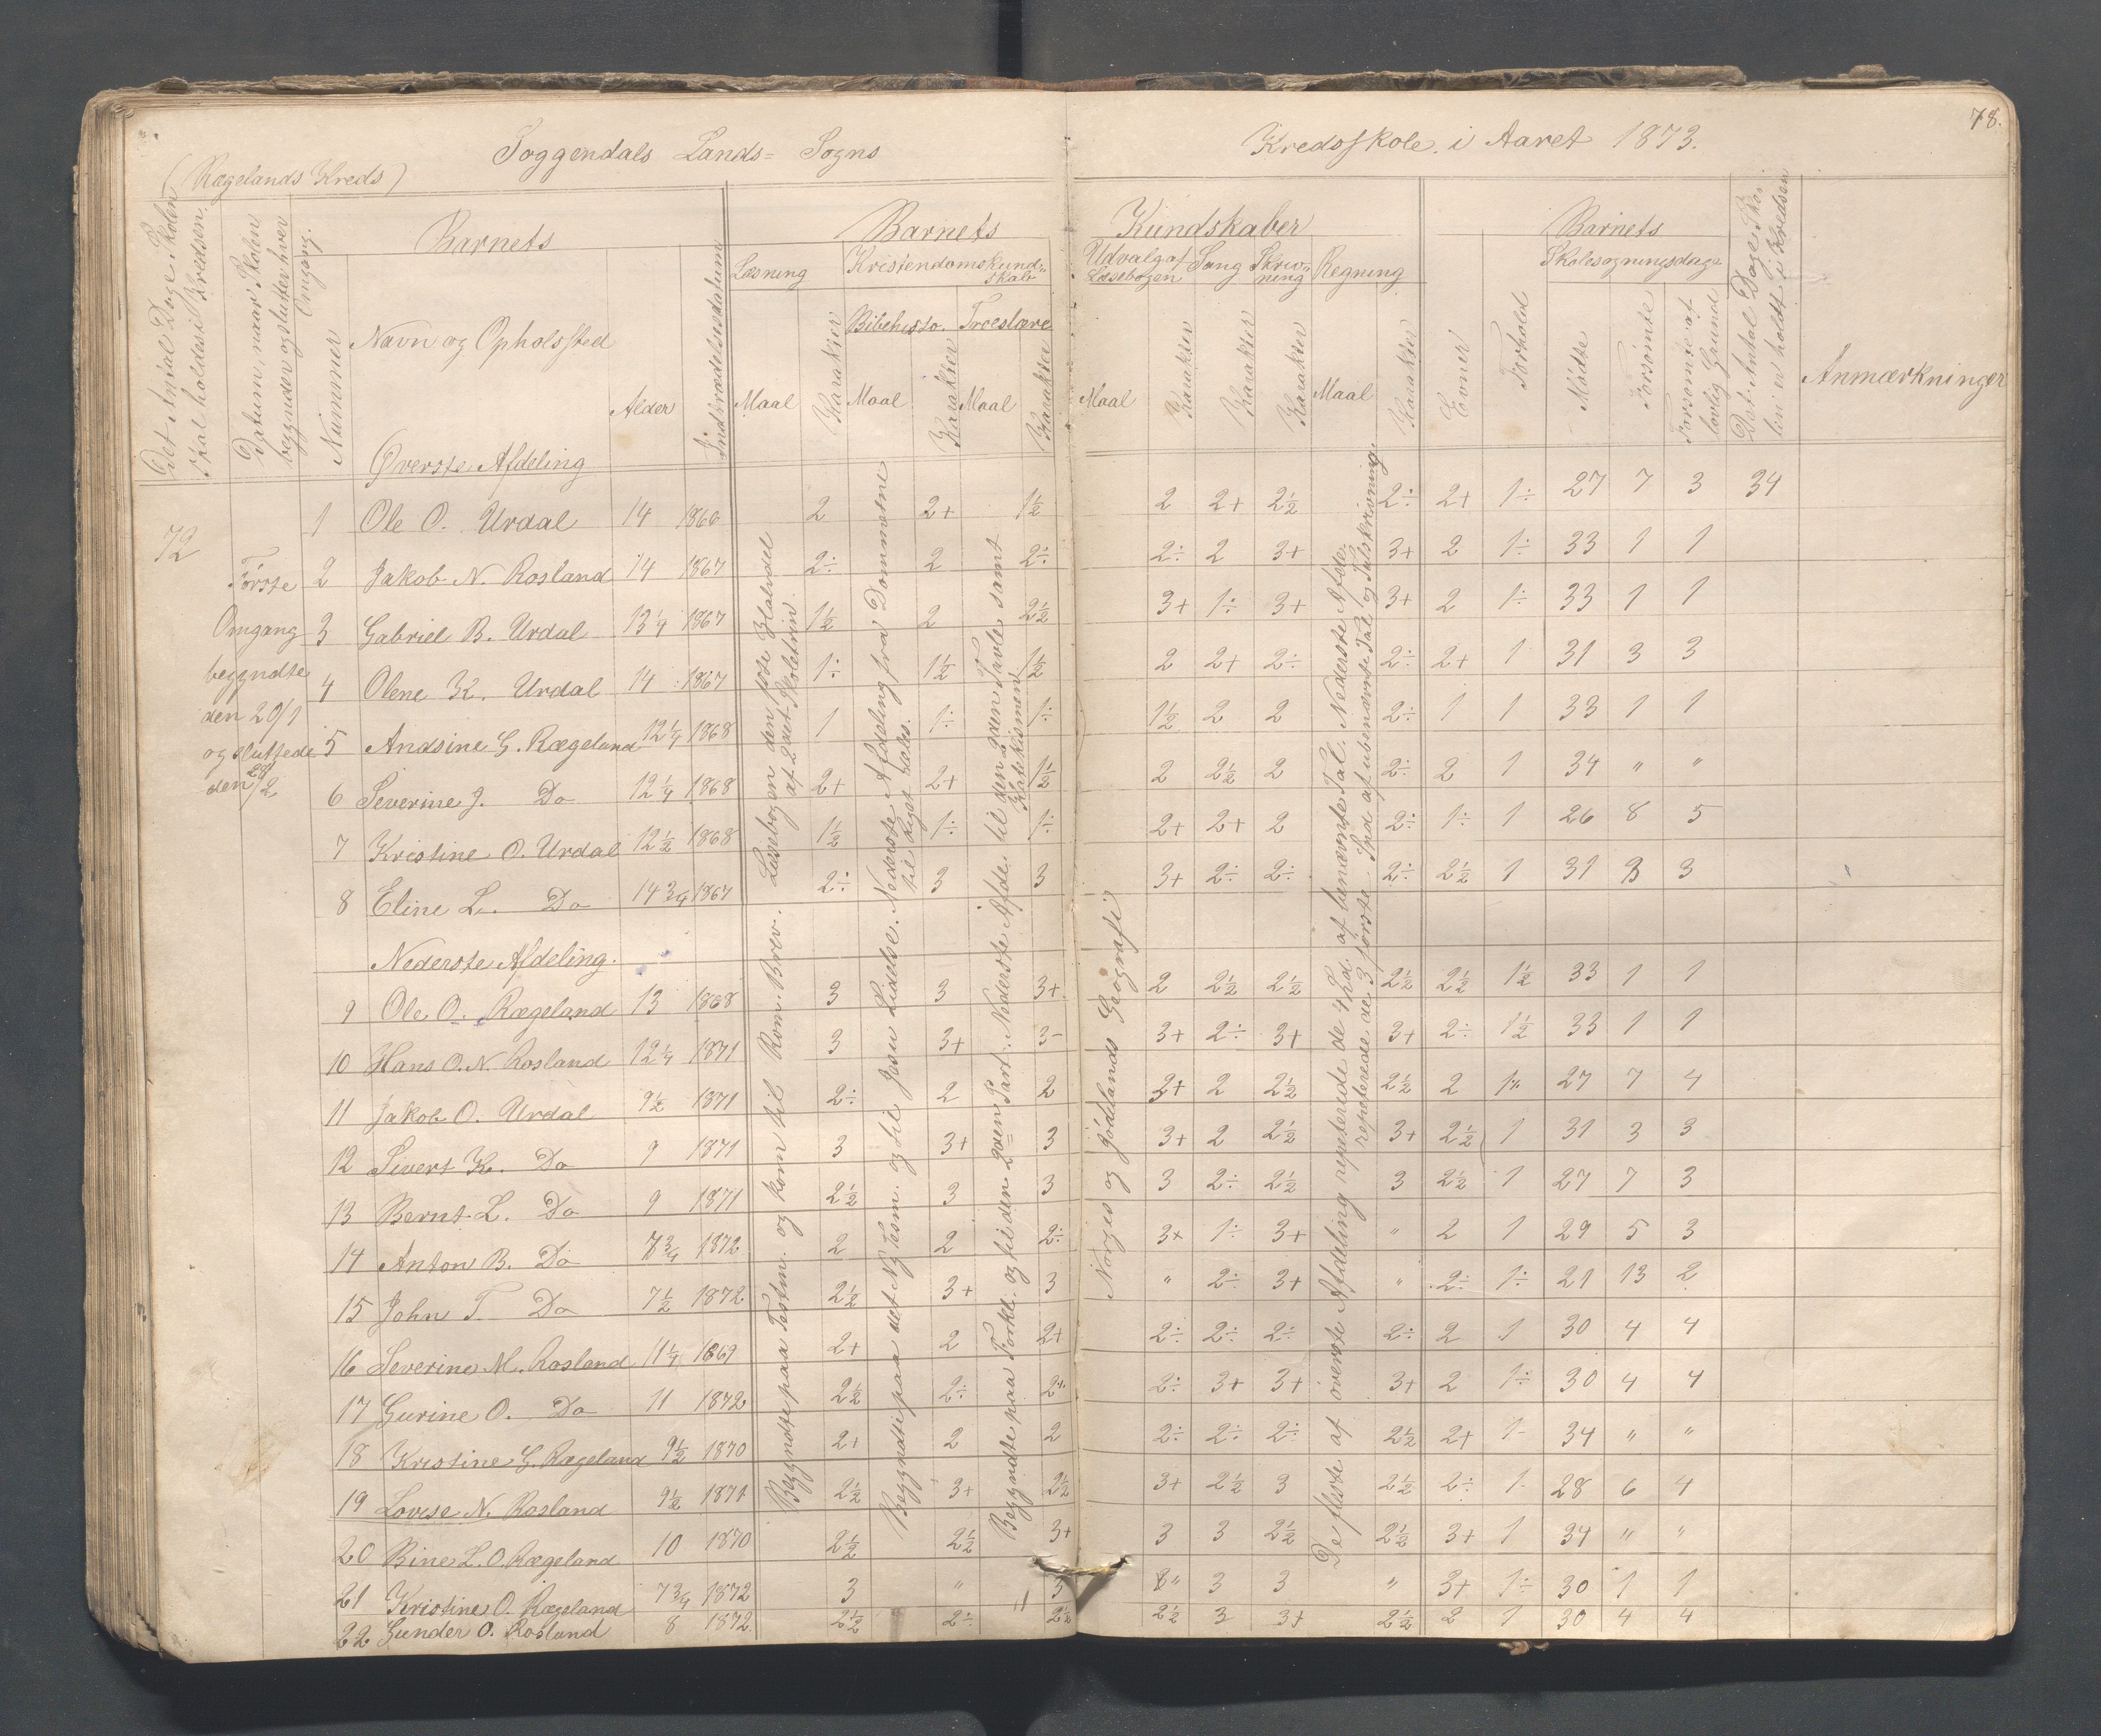 78.
Soggendals Lands= Sogns Kredsskole i Aaret 1873.
(Rægelands Kreds)
Det Antal Dage Skolen skal holdes i Kredsen.
Datum, naar Skolen begynder og slutter hver Omgang.
Nummer
Barnets
Navn og Opholdssted
Alder
Indtrædelsesdatum
Barnets Kundskaber
Læsning
Maal
Karakter
Kristendomskundskab
Bibelhisto.
Maal
Karakter
Troeslære
Maal
Karakter
Udvalg af Læsebogen
Maal
Karakter
Sang
Karakter
Skrivning
Karakter
Regning
Maal
Karakter
Barnets
Evner
Forhold
Skolesøgningsdage
Mødte
Forsømte
Forsømte af lovlig Grund
Det Antal Dage Skolen er holdt i Kredsen
Anmærkninger
72
Første
Omgang
begyndte
den 20/1
og sluttede
den 28/2
Øverste Afdeling
1 Ole O. Urdal 14 1866 2 2+ 1½ 2 2+ 2½ 2÷ 2+ 1÷ 27 7 3 34
2 Jakob N. Rosland 14 1867 2÷ 2 2÷ 2÷ 2 3+ 3+ 2 1÷ 33 1 1
3 Gabriel B. Urdal 13¼ 1867 1½ 2 2½ 3+ 1÷ 3+ 3+ 2 1÷ 33 1 1
4 Olene K. Urdal 14 1867 1÷ 1½ 1½ 2 2+ 2÷ 2÷ 2+ 1 31 3 3
5 Andsine G. Rægeland 12¼ 1868 1 1÷ 1÷ 1½ 2 2 2÷ 1 1 33 1 1
6 Severine J. Do 12¼ 1868 2+ 2+ 1½ 2 2½ 2 2÷ 2 1 34 " "
7 Kristine O. Urdal 12½ 1868 1½ 1÷ 1÷ 2+ 2+ 2 2÷ 1÷ 1 26 8 5
8 Eline L. Do 14¾ 1867 2÷ 3 3 3+ 2÷ 2÷ 2÷ 2½ 1 31 3 3
Nederste Afdeling.
9 Ole O. Rægeland 13 1868 3 3 3+ 2 2½ 2½ 2½ 2½ 1½ 33 1 1
10 Hans O. N. Rosland 12¼ 1871 3 3+ 3- 3+ 2÷ 3+ 3+ 2÷ 1½ 33 1 1
11 Jakob O. Urdal 9½ 1871 2÷ 2 2 2+ 2 2½ 2½ 2 1÷ 27 7 4
12 Sivert K. Do 9 1871 3 3+ 3 3+ 2 2½ 3+ 2½ 1 31 3 3
13 Bernt L. Do 9 1871 2½ 3 3 3 2÷ 2½ 3 2½ 1 27 7 3
14 Anton B. Do 7¾ 1872 2 2 2÷ 3+ 1÷ 3+ " 2 1 29 5 3
15 John T. Do 7½ 1872 2½ 3+ 3 " 2÷ 3+ " 2÷ 1÷ 21 13 2
16 Severine M. Rosland 11¼ 1869 2+ 2 2+ 2÷ 2÷ 2÷ 2÷ 2 1 30 4 4
17 Gurine O. Do 11 1872 2½ 2÷ 2÷ 2÷ 3+ 3+ 3+ 2 1÷ 30 4 4
18 Kristine G. Rægeland 9½ 1870 2+ 2 2 2÷ 2÷ 2÷ 2½ 2+ 1- 34 " "
19 Lovise N. Rosland 9½ 1871 2½ 3+ 2½ 3+ 2½ 3 2½ 2÷ 1- 28 6 4
20 Bine L. O. Rægeland 10 1870 2½ 2½ 3+ 3 3 2½ 2½ 3+ 1 34 " "
21 Kristine O. Rægeland 7¾ 1872 3 " 3 " 3 3 " 3+ 1÷ 30 1 1
22 Gunder O. Rosland 8 1872 2½ 2÷ 2½ 2½ 3 3+ 2½ 2 1 30 4 4
Begyndte paa Testm. og kom til Rom. Brev. Læsebogen den første Halvdel af 2det Skoletrin.
Begyndte paa det Ny Tesm. og til Jesu Lidelse. Nederste Afdeling fra Dommerne til Riget deles.
Begyndte paa Forkl. og til den 2den Part. Nederste Afde. til den 2den Tavle samt Katekismen
Norges og Jødelands Geografi
De fleste af øverste Afdeling repeterede de 4 Sd. af benævnte Tal. Nederste Afde. repeterede de 3 første Sp. af ubenævnte Tal og Talskrivning.